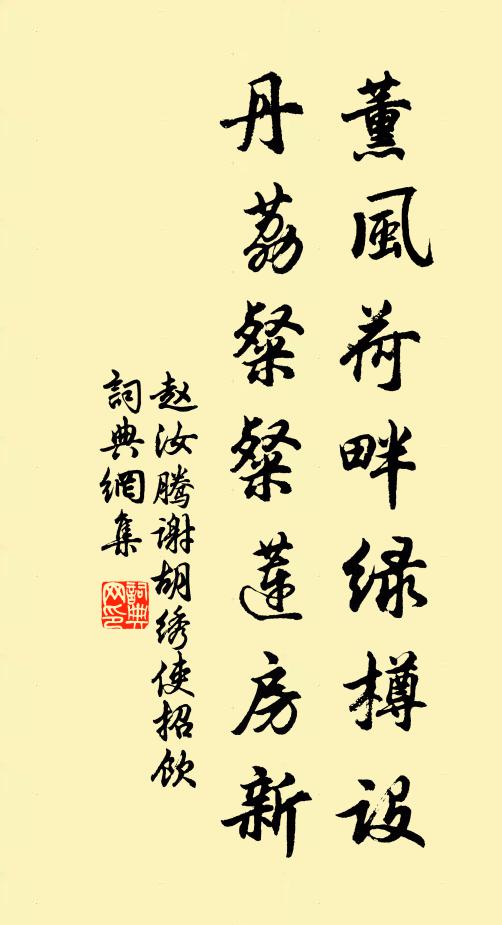 薰風荷畔緑樽設
丹荔粲粲蓮房新
赵汝腾谢胡绣使招飲
詞典網集
詞典网印